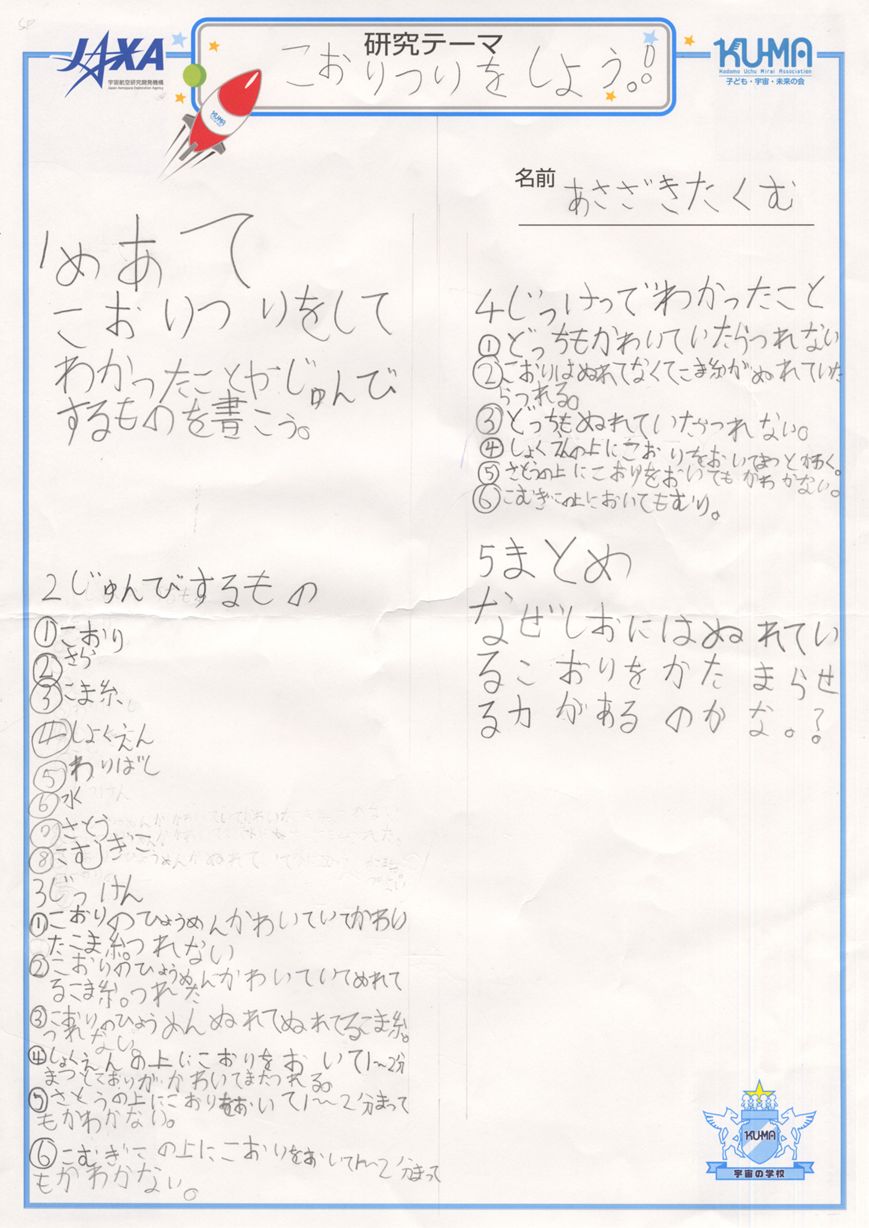 JAXA
宇宙航空研究開発機構
Japan Aerospace Exploration Agency
研究テーマ
こおりつりをしよう。!
KU-MA
Kodomo Uchu Mirai Association
子ども・宇宙・未来の会
KU-MA
名前 あさざきたくむ
1めあて
こおりつりをして
わかったことやじゅんび
するものを書こう。
2じゅんびするもの
①こおり
②さら
③こま糸、
④しょくえん
⑤わりばし
⑥水
⑦さとう
⑧こむぎこ
3じっけん
①こおりのひょうめんかわいていてかわい
たこま糸。つれない
②こおりのひょうめんかわいていてぬれて
るこま糸。つれた
③こおりのひょうめんぬれてぬれてるこま糸。
つれない
④しょくえんの上にこおりをおいて1〜2分
まつとこおりがかわいてまたつれる。
⑤さとうの上にこおりをおいて1〜2分まって
もかわかない。
⑥こむぎこの上にこおりをおいて1〜2分まって
もかわかない。
4じっけってでわかったこと
①どっちもかわいていたらつれない
②こおりはぬれてなくてこま糸がぬれていた
らつれる。
③どっちもぬれていたらつれない。
④しょくえんの上にこおりをおいてまつとかわく。
⑤さとうの上にこおりをおいてもかわかない。
⑥こむぎこの上においてもむり。
5まとめ
なぜしおにはぬれてい
るこおりをかたまらせ
る力があるのかな。?
KU-MA
宇宙の学校